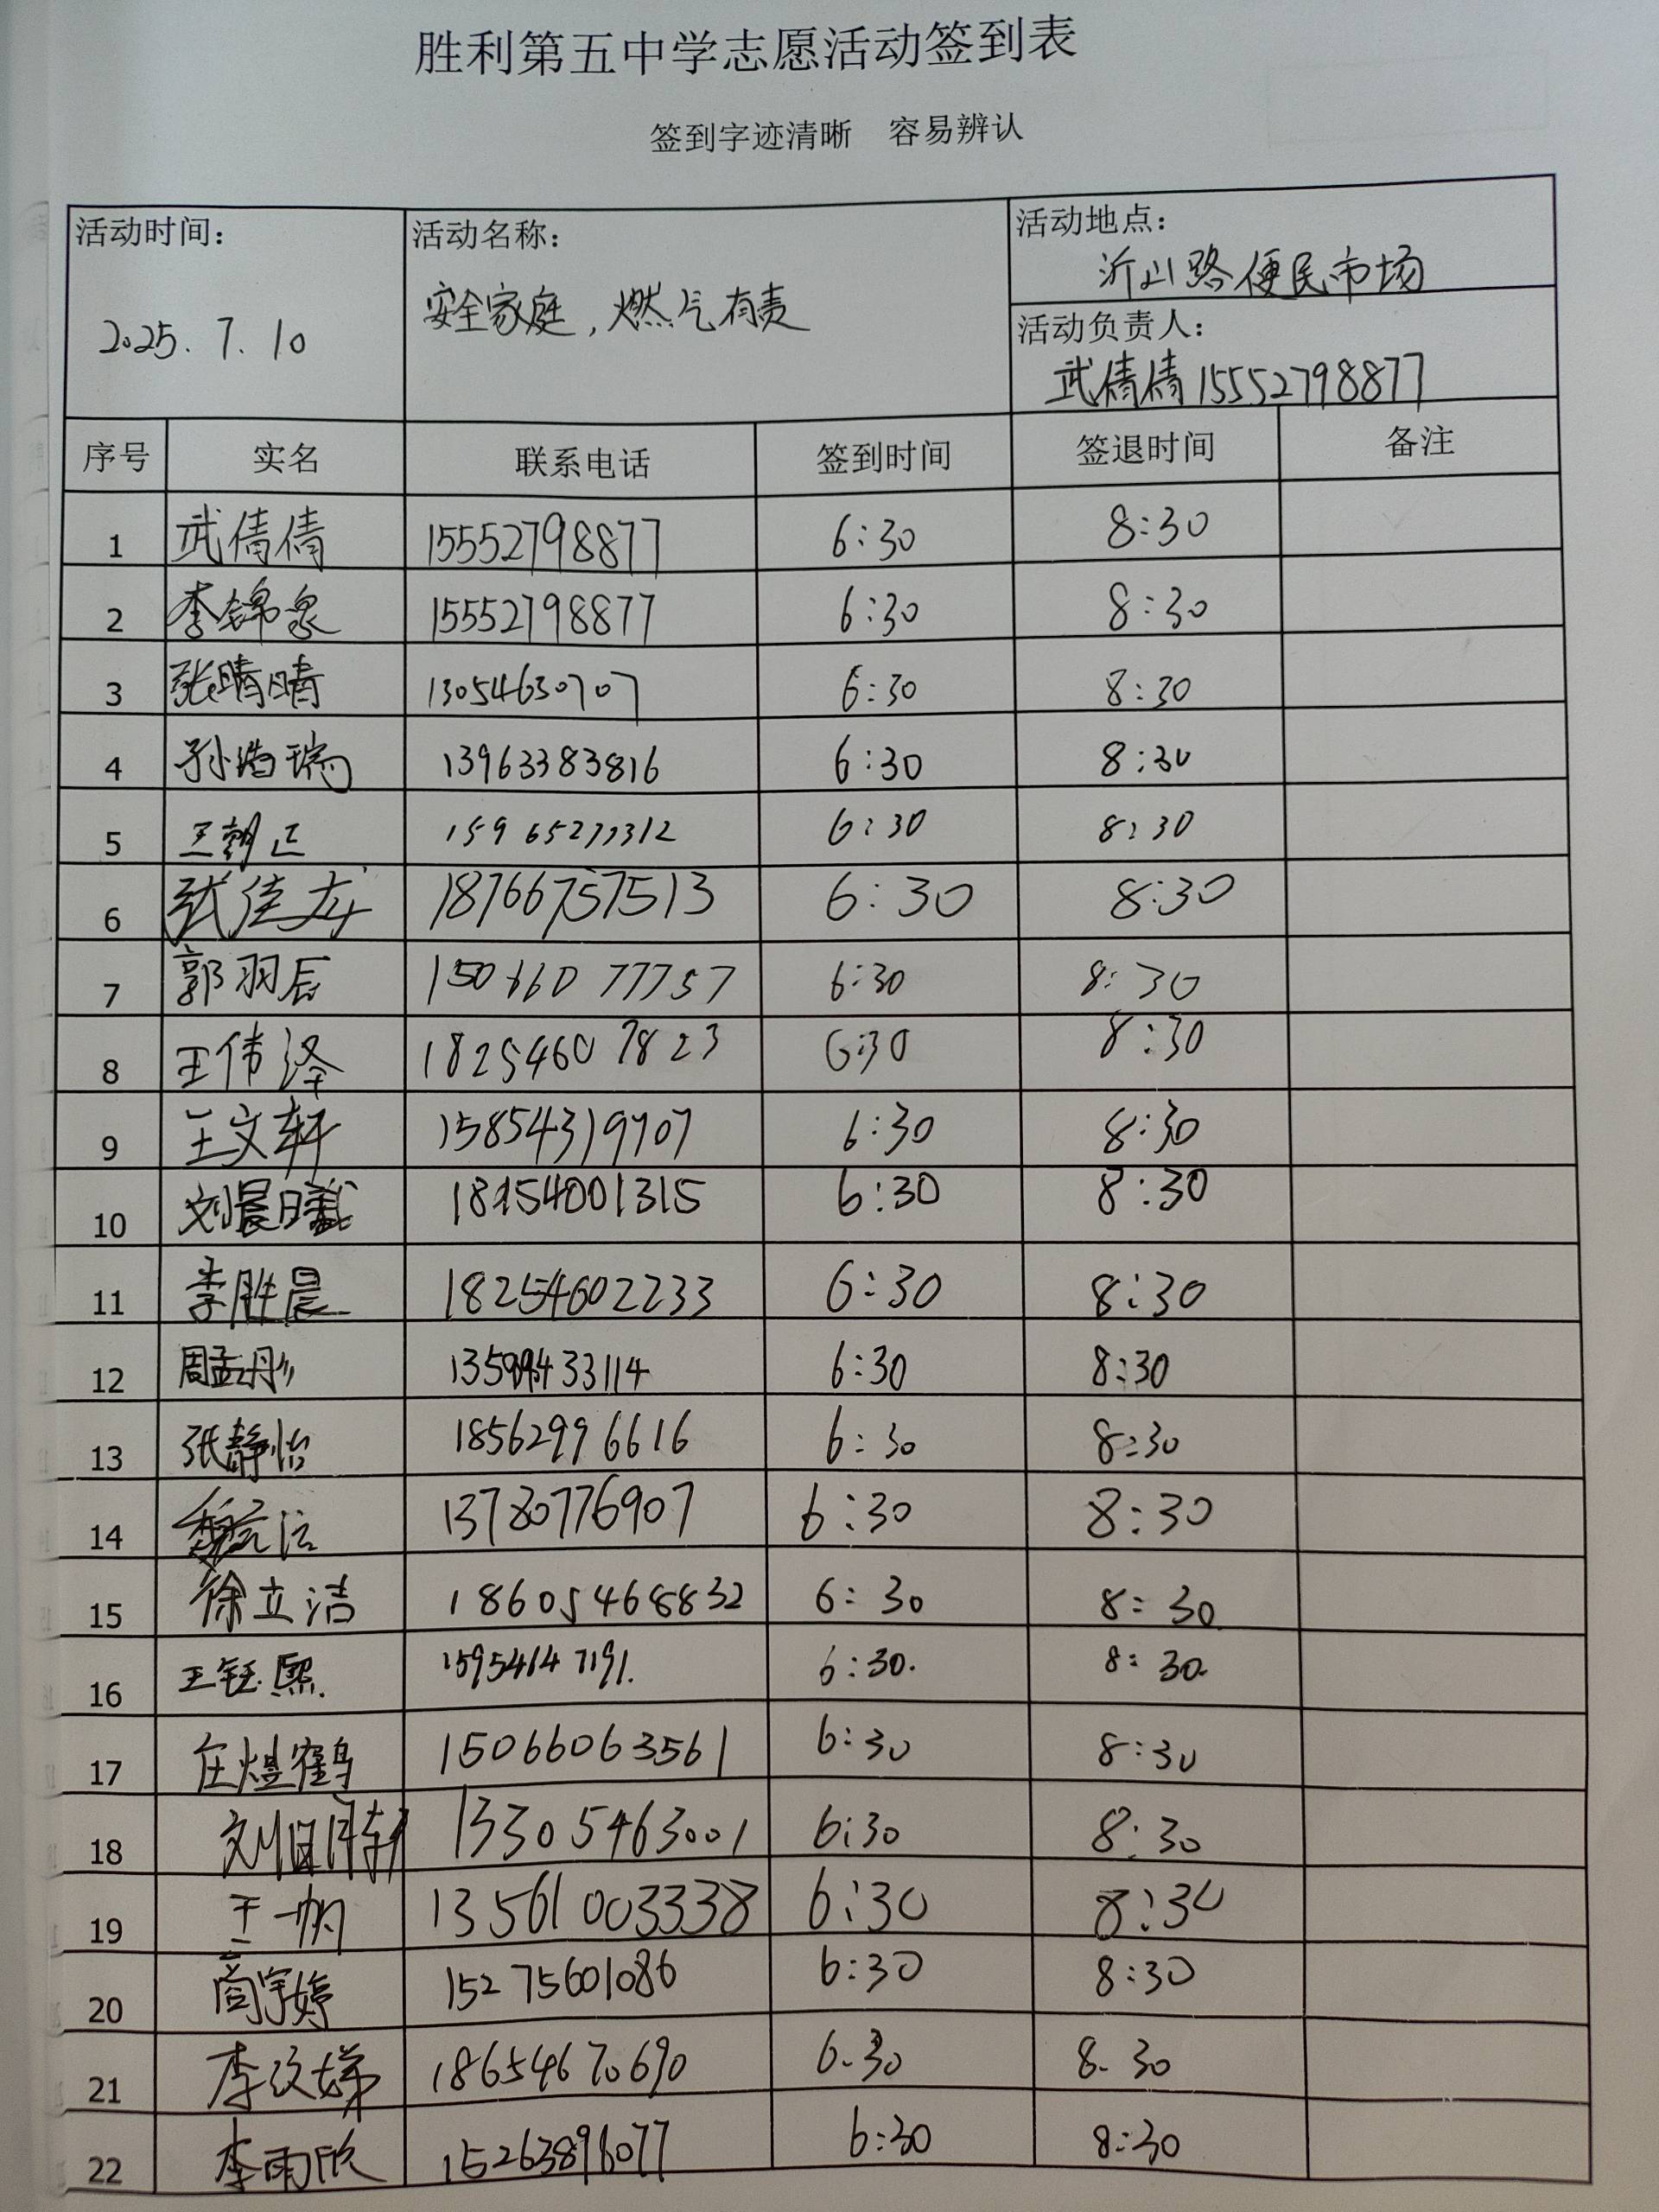 胜利第五中学志愿活动签到表
签到字迹清晰 容易辨认
活动时间: 2025.7.10
活动名称: 安全家庭,燃气有责
活动地点: 沂山路便民市场
活动负责人: 武倩倩 15552798877
序号 实名 联系电话 签到时间 签退时间 备注
1 武倩倩 15552798877 6:30 8:30
2 李锦泉 15552798877 6:30 8:30
3 张晴晴 13054630707 6:30 8:30
4 孙浩瑞 13963383816 6:30 8:30
5 王朝正 15965277312 6:30 8:30
6 张佳龙 18766757513 6:30 8:30
7 郭羽辰 15066077757 6:30 8:30
8 王伟泽 18254607823 6:30 8:30
9 王文轩 15854319707 6:30 8:30
10 刘晨曦 6:30 8:30
11 李胜晨 18254602233 6:30 8:30
12 周孟彤 6:30 8:30
13 张静怡 18562996616 6:30 8:30
14 13780776907 6:30 8:30
15 徐立洁 18605468832 6:30 8:30
16 王钰熙. 15954647191. 6:30. 8:30.
17 庄煜鹤 15066063561 6:30 8:30
18 13305463001 6:30 8:30
19 王一帆 13561003338 6:30 8:30
20 商宇婷 15275601086 6:30 8:30
21 李汶娣 18654670690 6.30 8.30
22 李雨欣 15263896077 6:30 8:30